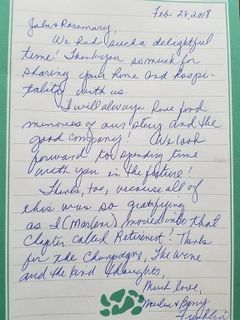 Feb 28, 2018
John & Rosemary,
We had such a delightful
time! Thank you so much for
sharing your home and hospi-
tality with us.
I will always have fond
memories of our stay and the
good company! We look
forward to spending time
with you in the future!
Thanks, too, because all of
this was so gratifying
as I (Marlene) moved into that
Chapter called Retirement! Thanks
for the Champagne, the wine
and the kind thoughts,
Much love,
Marlene & Benji
Franklin